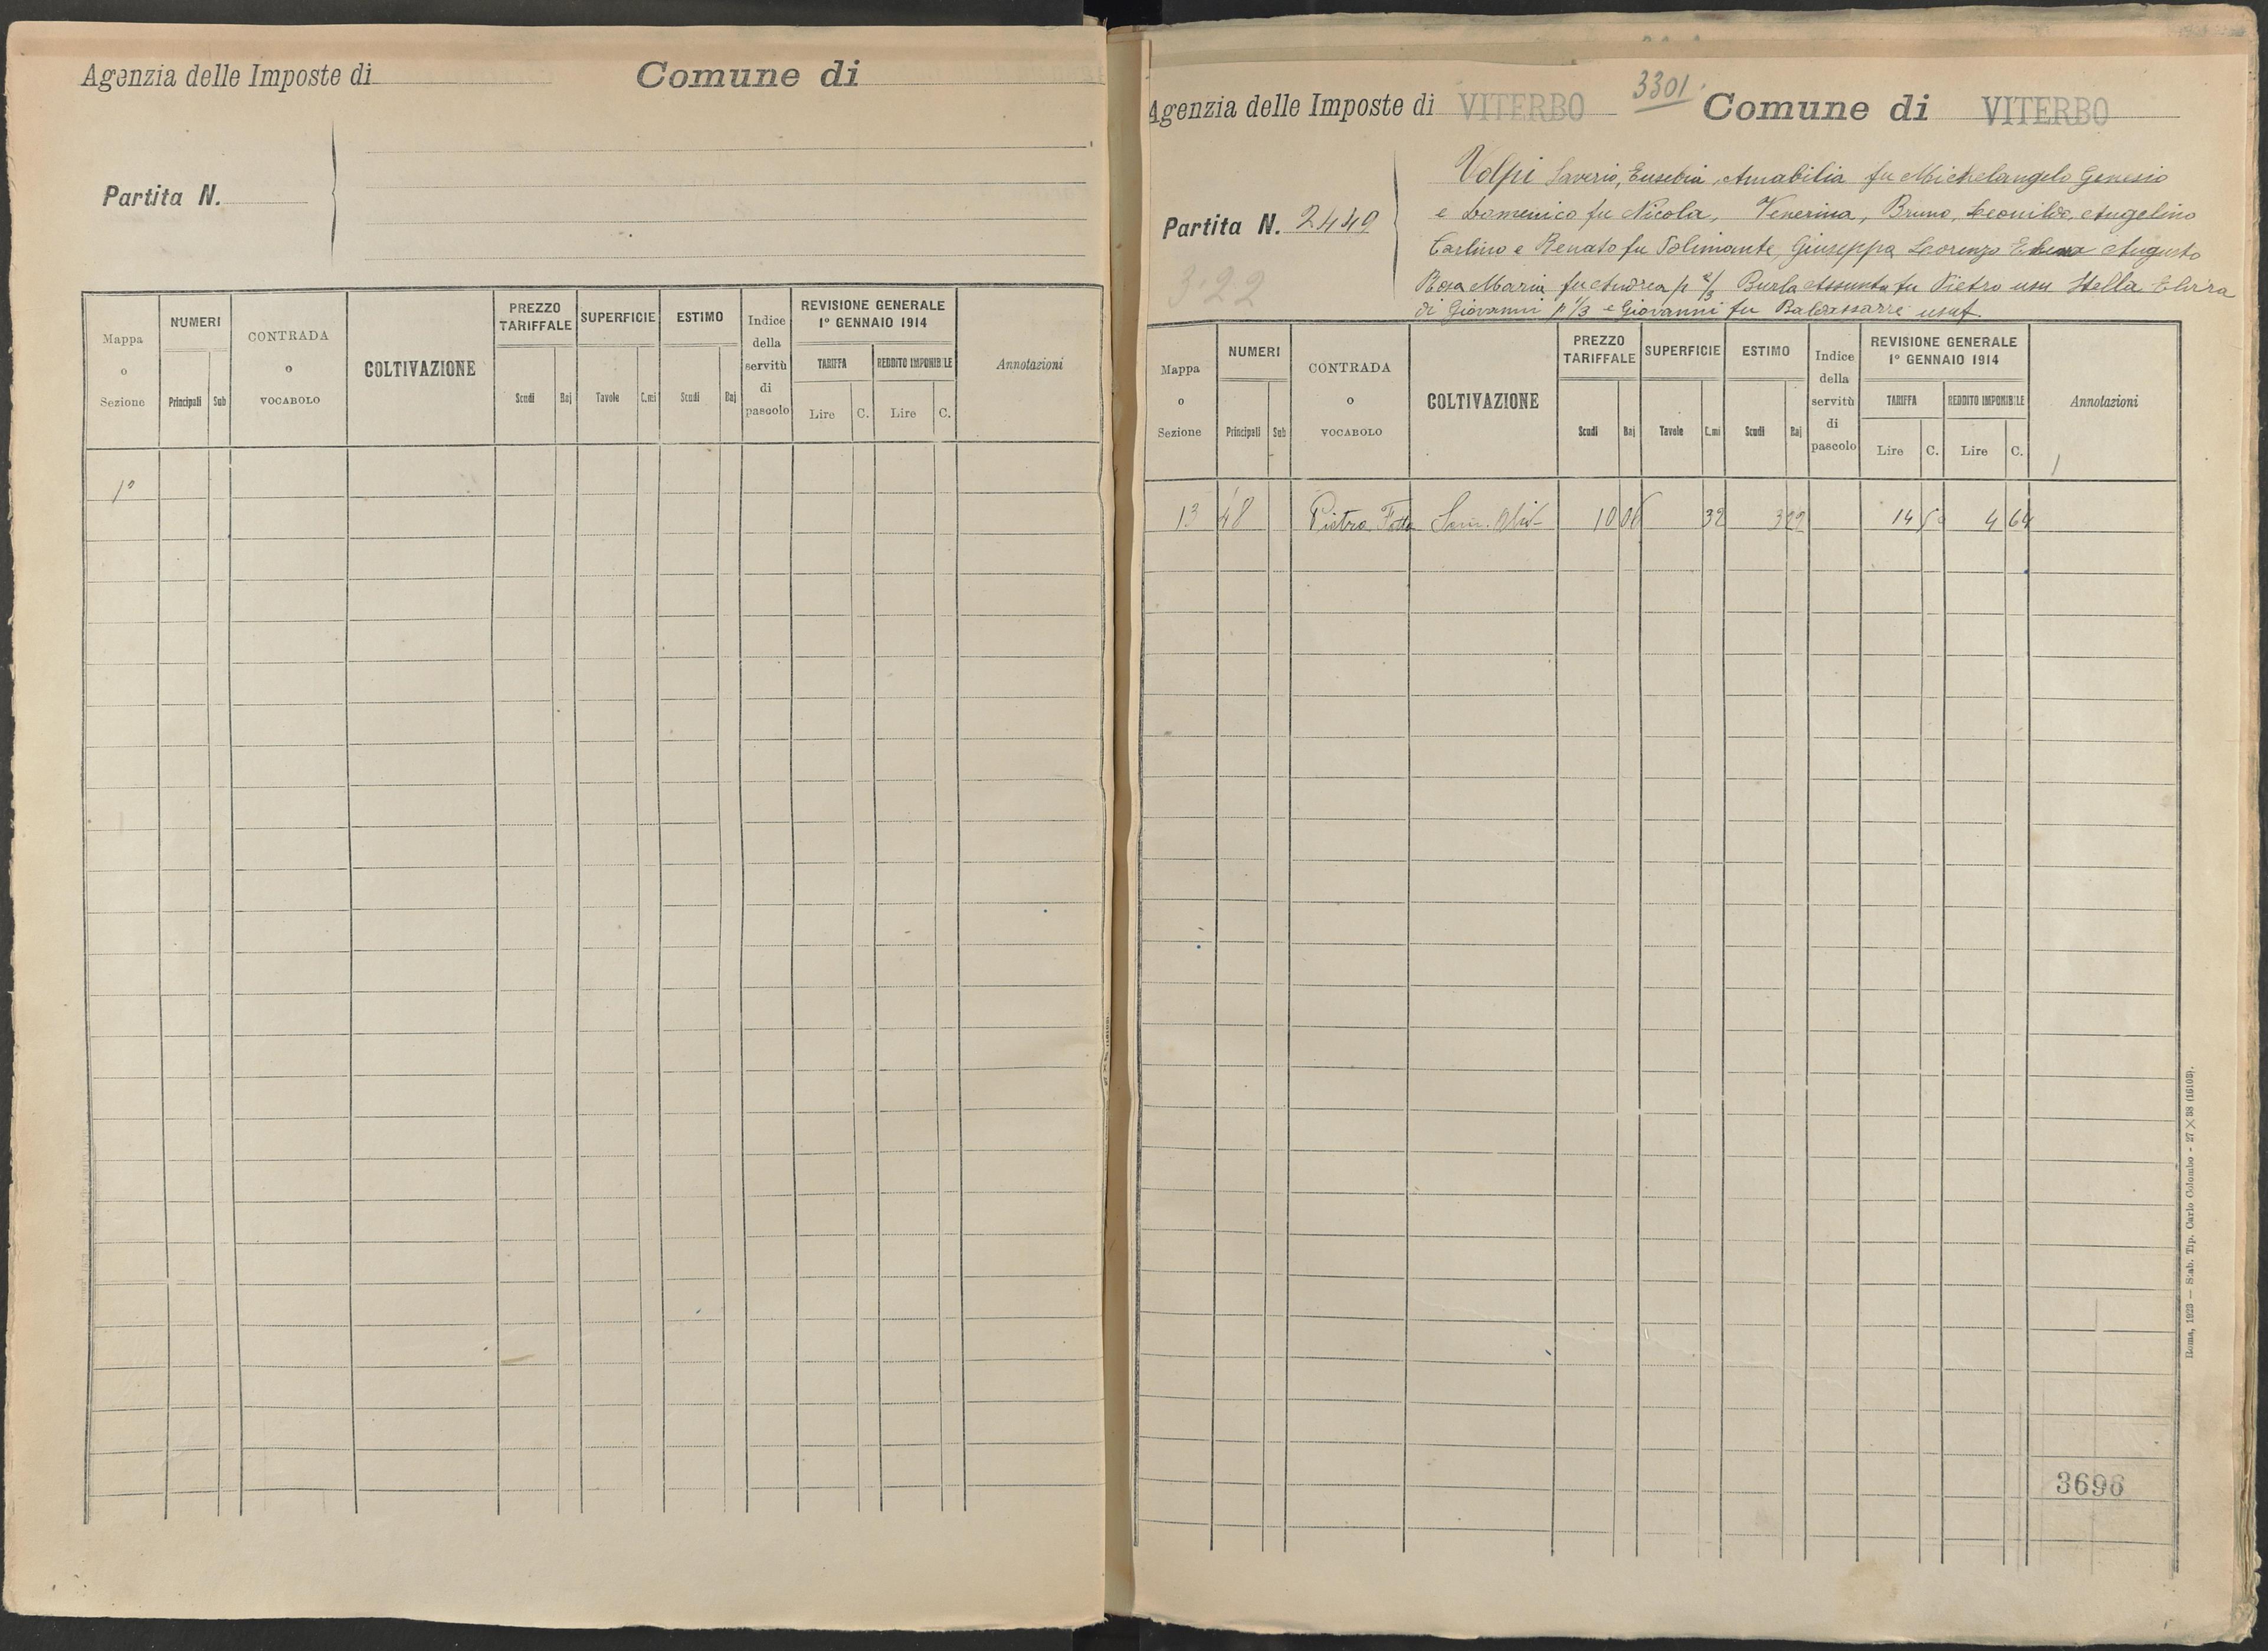 Agenzia delle Imposte di
Comune di
Partita N.
Mappa o Sezione
NUMERI
Principali
Sub
CONTRADA o VOCABOLO
COLTIVAZIONE
PREZZO TARIFFALE
Scudi
Baj
SUPERFICIE
Tavole
C.mi
ESTIMO
Scudi
Baj
Indice della servitù di pascolo
REVISIONE GENERALE
1° GENNAIO 1914
TARIFFA
Lire
C.
REDDITO IMPONIBILE
Lire
C.
Annotazioni
1°
3301
Agenzia delle Imposte di VITERBO
Comune di VITERBO
Partita N. 2449
322
Volpi Saverio, Eusebia, Amabilia fu Michelangelo Genesio
e Domenico fu Nicola, Venerina, Bruno, Leonilda, Angelino
Carlino e Renato fu Solimante, Giuseppa Lorenzo Elena Augusto
Rosa Maria fu Andrea p 2/3 Burla Assunta fu Pietro usu Stella Elvira
di Giovanni p 1/3 e Giovanni fu Baldassarre usuf.
Mappa o Sezione
NUMERI
Principali
Sub
CONTRADA o VOCABOLO
COLTIVAZIONE
PREZZO TARIFFALE
Scudi
Baj
SUPERFICIE
Tavole
C.mi
ESTIMO
Scudi
Baj
Indice della servitù di pascolo
REVISIONE GENERALE
1° GENNAIO 1914
TARIFFA
Lire
C.
REDDITO IMPONIBILE
Lire
C.
Annotazioni
13 48 Pietra Fatta Sem. 10 06 32 3 22 14 50 4 64
3696
Roma, 1923 — Stab. Tip. Carlo Colombo - 27 × 38 (16103).